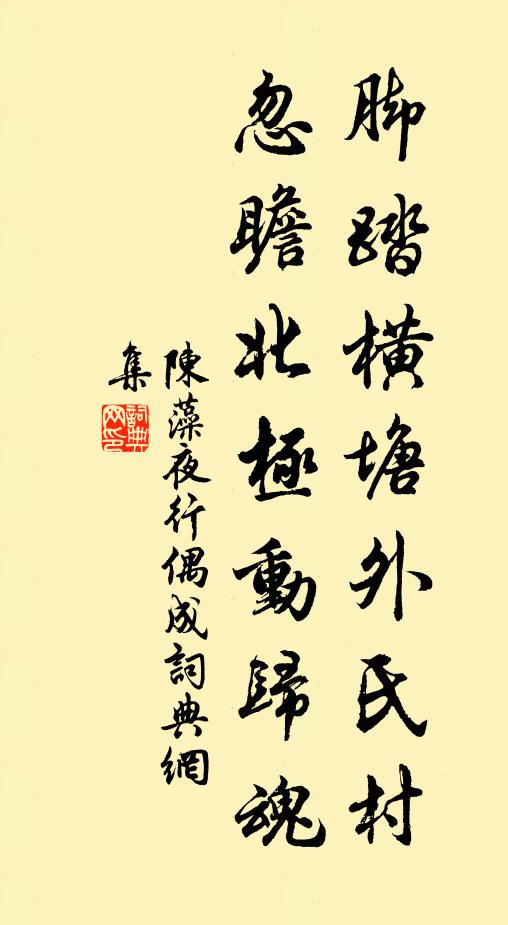 脚踏橫塘外民村
忽瞻北極動歸魂
陳藻夜行偶成詞典網
集
詞典網印